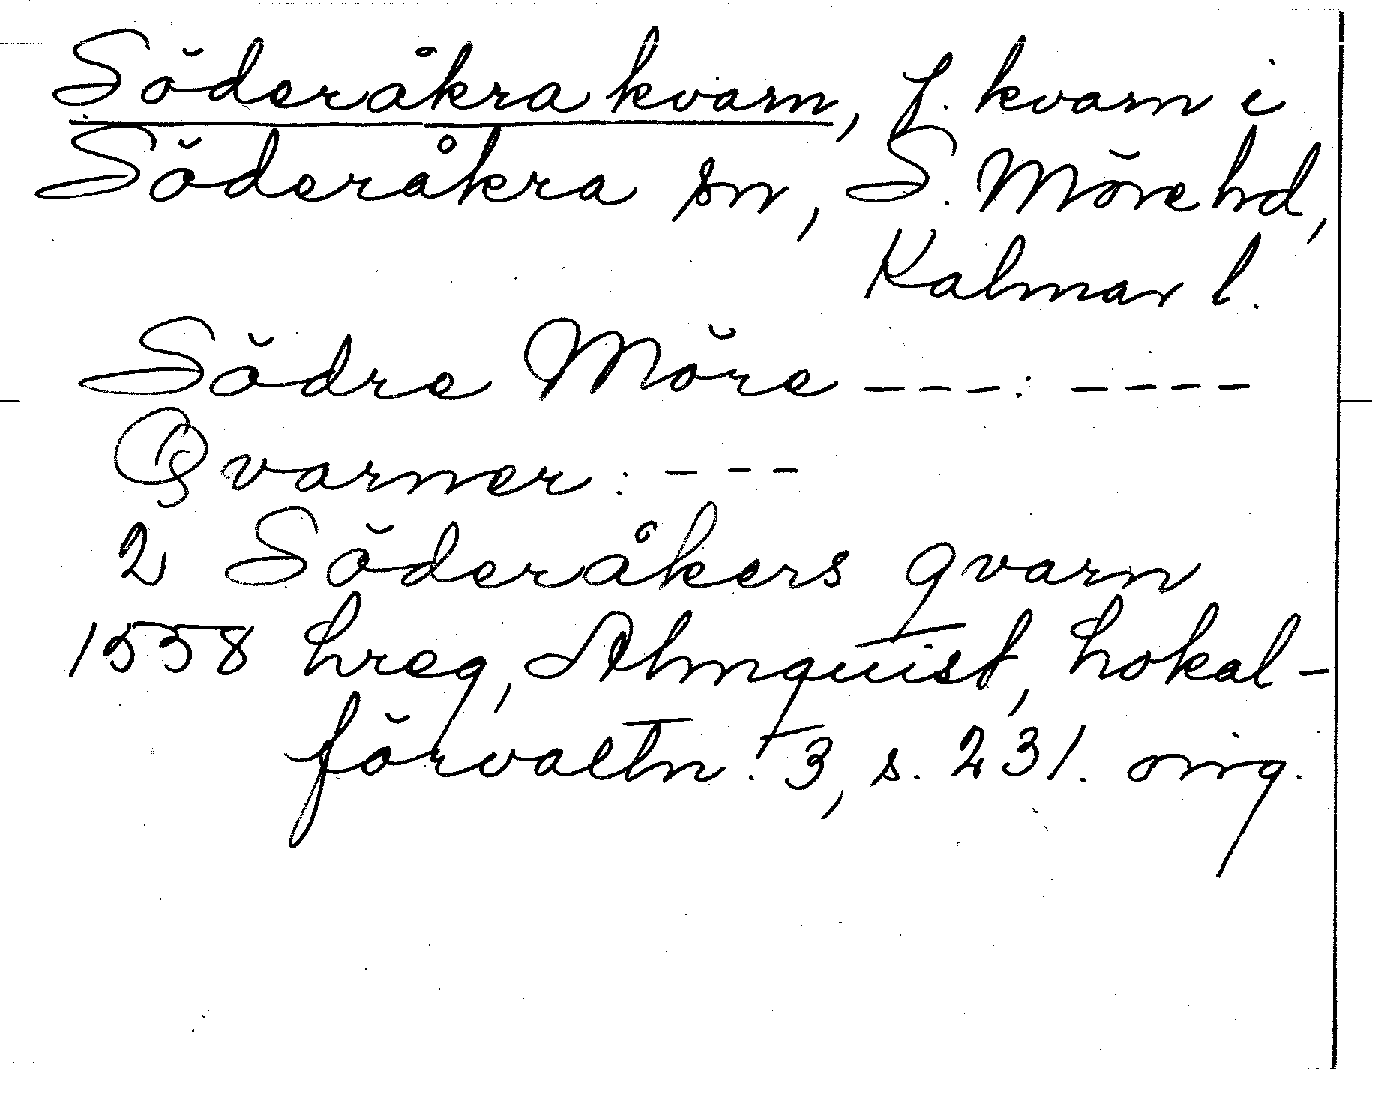 Söderåkra kvarn, f. kvarn i
Söderåkra sn, S. Möre hd,
Kalmar l.
Södre Möre ---: ----
Qvarner: ---
2 Söderåkers qvarn
1558 hreg, Almquist, Lokal-
förvaltn. 3, s. 231. orig.